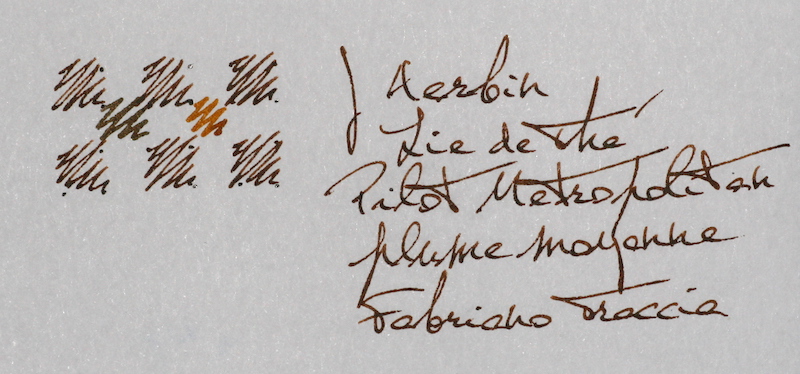 J Herbin
Lie de Thé
Pilot Metropolitan
plume moyenne
Fabriano Traccia